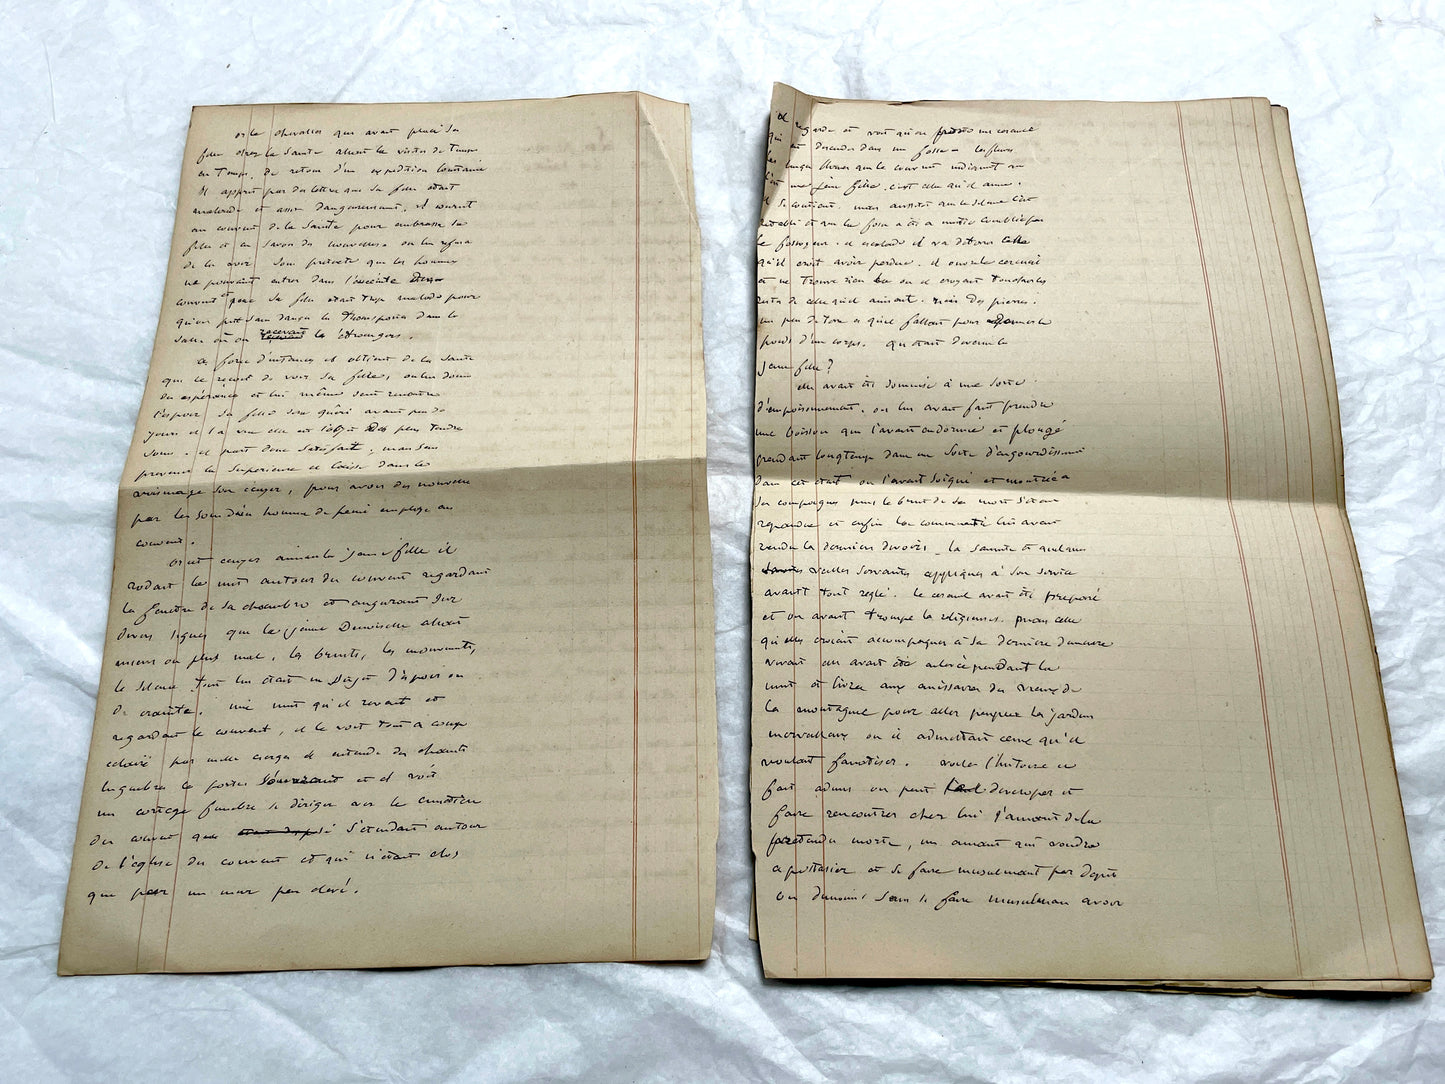 or le chevalier qui avait placé sa
fille chez la Sainte allait la visiter de temps
en temps. De retour d'un expédition lointaine
il apprit par des lettre que sa fille était
malade et assez dangereusement. il courut
au couvent de la Sainte pour embrasser sa
fille et en savoir des nouvelles. on lui refusa
de la voir sous prétexte que les hommes
ne pouvaient entrer dans l'enceinte du
couvent et que sa fille était trop malade pour
qu'on put sans danger la transporter dans la
salle où on recevait les étrangers.
a force d'instances il obtient de la Sainte
qui le reçoit de voir sa fille, on lui donne
des espérances et lui même sent renaitre
l'espoir sa fille sera guérie avant peu de
jours et à la vue elle est l'objet des plus tendre
soins. il part donc satisfait, mais sans
prévenir la Supérieure il laisse dans le
voisinage son écuyer, pour avoir des nouvelle
par les soins d'un homme de peine employé au
couvent.
cet écuyer aimait la jeune fille il
rodait la nuit autour du couvent regardant
la fenêtre de sa chambre et augurant sur
divers signes que la jeune Demoiselle allait
mieux ou plus mal. les bruits, les mouvements,
le silence tout lui était un sujet d'espoir ou
de crainte. une nuit qu'il revait et
regardait le couvent, il le voit tout a coup
éclairé par mille cierges il entende des chants
lugubres la porte s'ouvrait et il voit
un cortège funebre se diriger vers le cimetière
du couvent qui s'étendait autour
de l'église du couvent et qui n'était clos
que par un mur peu élevé.
il regarde et voit qu'on un cercueil
qui est descendu dans une fosse. les fleurs
les longs que le couvent indiquent que
c'est une jeune fille. c'est celle qu'il aime.
il se contient, mais aussitôt que le silence s'est
rétabli et que la fosse a été a moitié comblée par
le fossoyeur. il escalade il va déterrer celle
qu'il croit avoir perdue. il ouvre le cercueil
et ne trouve rien là où il croyait trouver les
restes de celle qu'il aimait. mais des pierres.
un peu de terre ce qu'il fallait pour donner le
poids d'un corps. qu'était devenue la
jeune fille?
elle avait été soumise à une sorte
d'empoisonnement. on lui avait fait prendre
une boisson qui l'avait endormie et plongé
pendant longtemps dans une sorte d'engourdissement
dans cet état on l'avait soigné et montrée à
ses compagnes puis le bruit de sa mort s'etait
repandue et enfin la communauté lui avait
rendu les derniers devoirs. la Sainte et quelques
vieilles servantes appliqués à son service
avait tout reglé. le cercueil avait été preparé
et on avait trompé les religieuses. puis celle
qu'elles croient accompagner à sa dernière demeure
vivant en avait été enlevée pendant la
nuit et livrée aux emissaires du vieux de
la montagne pour aller peupler les jardins
merveilleux où il admettait ceux qu'il
voulait fanatiser. voilà l'histoire ce
fait admis on peut developper et
faire rencontrer chez lui l'amant de la
pretendu morte, un amant qui voudra
apostasier et se faire musulman par dépit
ou du moins sans se faire musulman avoir